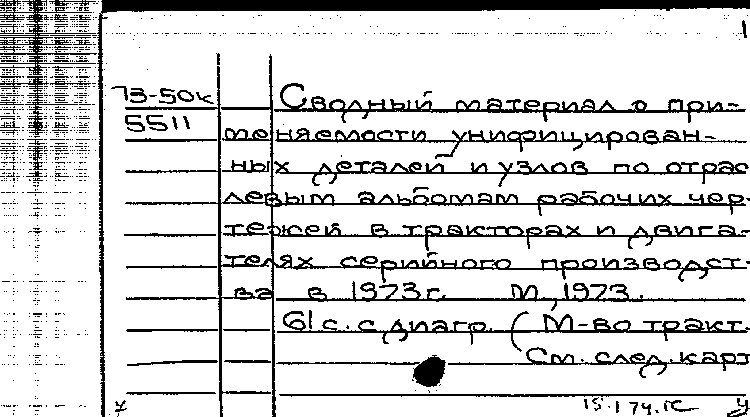 1
73-50к
5511
Сводный материал о при-
меняемости унифицирован-
ных деталей и узлов по отрас
левым альбомам рабочих чер-
тежей в тракторах и двига-
телях серийного производст-
ва в 1973г. М., 1973.
61 с. с диагр. (М-во тракт.
См. след. карт